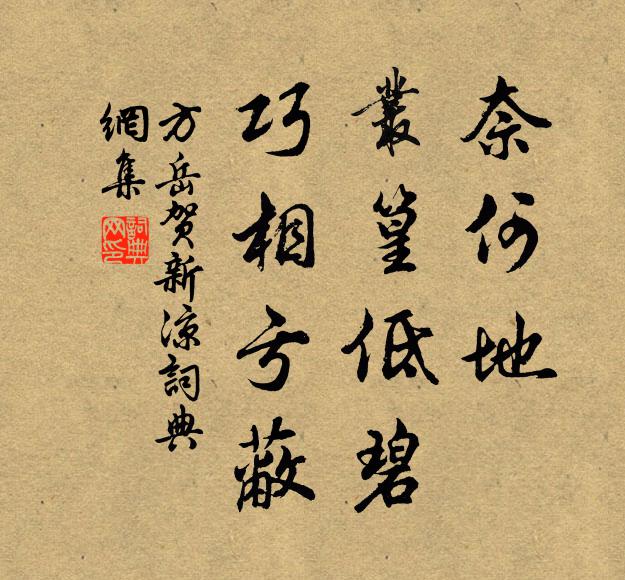 奈何地
叢篁低碧
巧相亏蔽
方岳賀新涼詞典
網集
詞典
网印